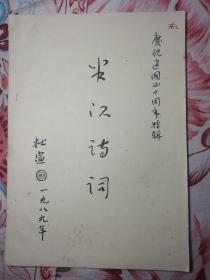 慶祝建国四十周年特辑
江诗词
杜宣 一九八九年